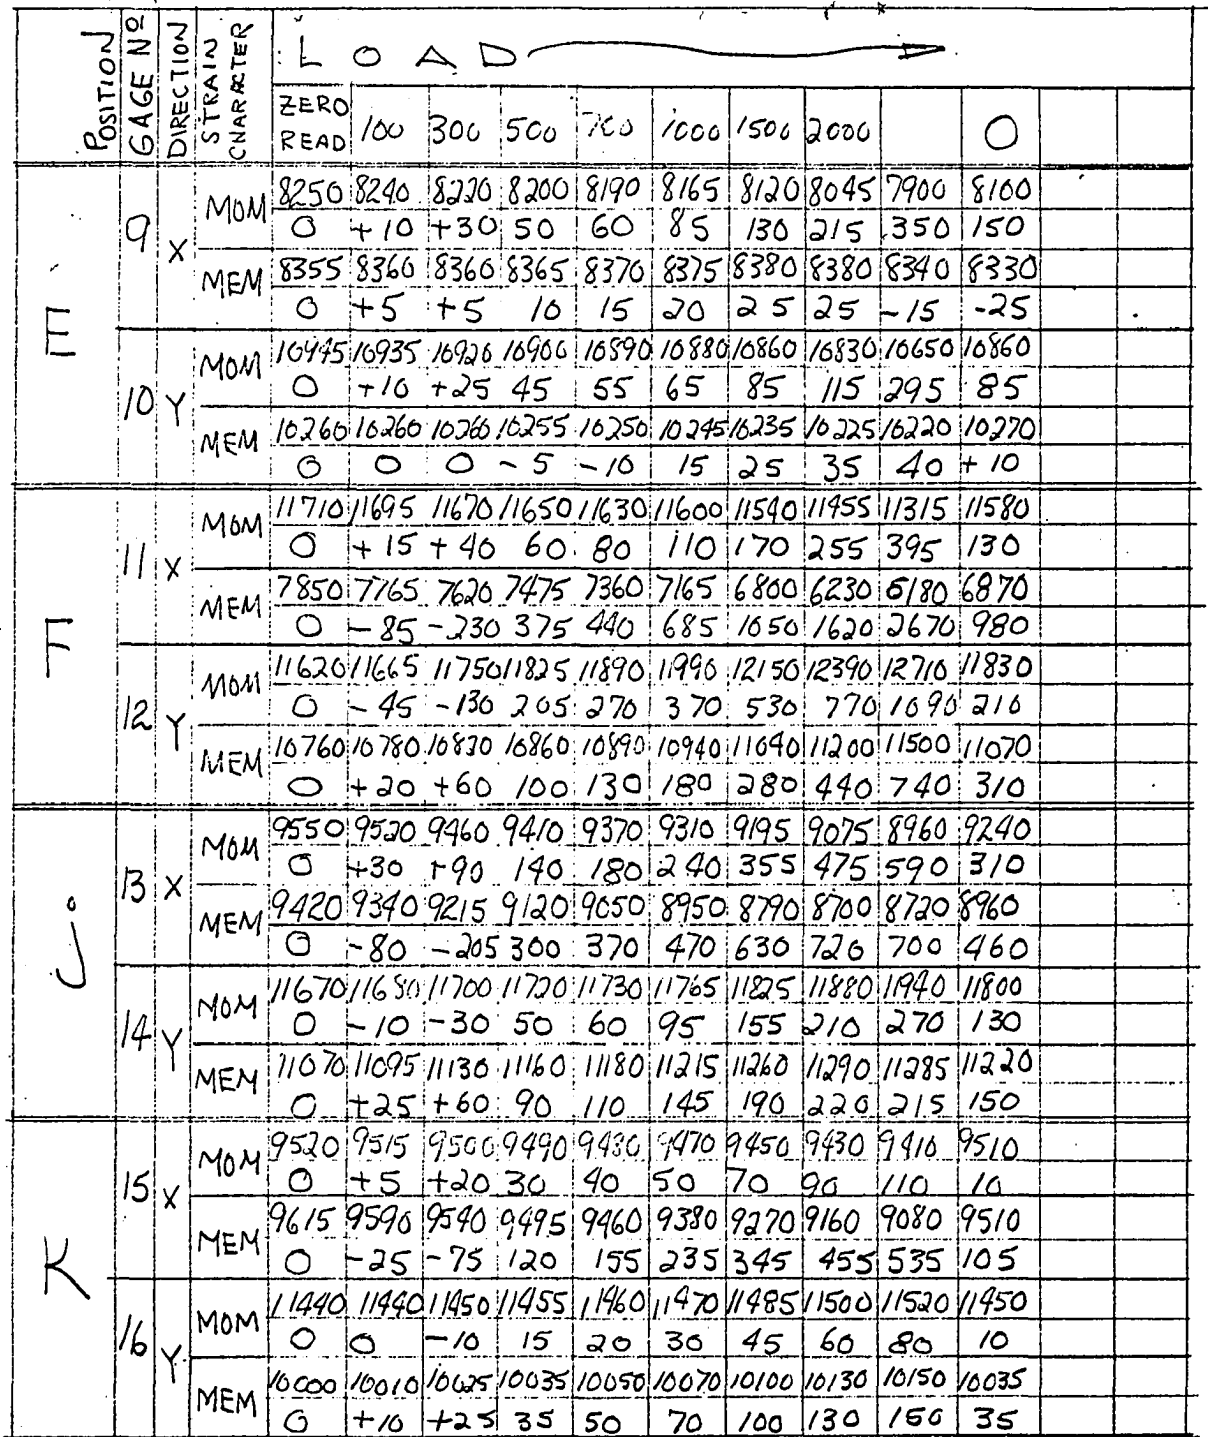 POSITION GAGE Nº DIRECTION STRAIN CHARACTER LOAD
ZERO READ 100 300 500 700 1000 1500 2000 0
E 9 X MOM 8250 8240 8220 8200 8190 8165 8120 8045 7900 8100
0 +10 +30 50 60 85 130 215 350 150
MEM 8355 8360 8360 8365 8370 8375 8380 8380 8340 8330
0 +5 +5 10 15 20 25 25 -15 -25
10 Y MOM 10945 10935 10920 10900 10890 10880 10860 10830 10650 10860
0 +10 +25 45 55 65 85 115 295 85
MEM 10260 10260 10260 10255 10250 10245 10235 10225 10220 10270
0 0 0 -5 -10 15 25 35 40 +10
F 11 X MOM 11710 11695 11670 11650 11630 11600 11540 11455 11315 11580
0 +15 +40 60 80 110 170 255 395 130
MEM 7850 7765 7620 7475 7360 7165 6800 6230 5180 6870
0 -85 -230 375 440 685 1050 1620 2670 980
12 Y MOM 11620 11665 11750 11825 11890 11990 12150 12390 12710 11830
0 -45 -130 205 270 370 530 770 1090 210
MEM 10760 10780 10820 10860 10890 10940 11040 11200 11500 11070
0 +20 +60 100 130 180 280 440 740 310
J 13 X MOM 9550 9520 9460 9410 9370 9310 9195 9075 8960 9240
0 +30 +90 140 180 240 355 475 590 310
MEM 9420 9340 9215 9120 9050 8950 8790 8700 8720 8960
0 -80 -205 300 370 470 630 720 700 460
14 Y MOM 11670 11680 11700 11720 11730 11765 11825 11880 11940 11800
0 -10 -30 50 60 95 155 210 270 130
MEM 11070 11095 11130 11160 11180 11215 11260 11290 11285 11220
0 +25 +60 90 110 145 190 220 215 150
K 15 X MOM 9520 9515 9500 9490 9480 9470 9450 9430 9410 9510
0 +5 +20 30 40 50 70 90 110 10
MEM 9615 9590 9540 9495 9460 9380 9270 9160 9080 9510
0 -25 -75 120 155 235 345 455 535 105
16 Y MOM 11440 11440 11450 11455 11460 11470 11485 11500 11520 11450
0 0 -10 15 20 30 45 60 80 10
MEM 10000 10010 10025 10035 10050 10070 10100 10130 10150 10035
0 +10 +25 35 50 70 100 130 150 35